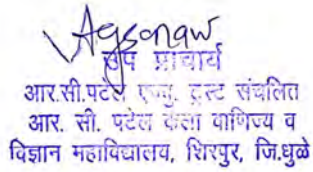 उप प्राचार्य
आर.सी.पटेल एज्यु. ट्रस्ट संचलित
आर. सी. पटेल कला वाणिज्य व
विज्ञान महाविद्यालय, शिरपुर, जि.धुळे